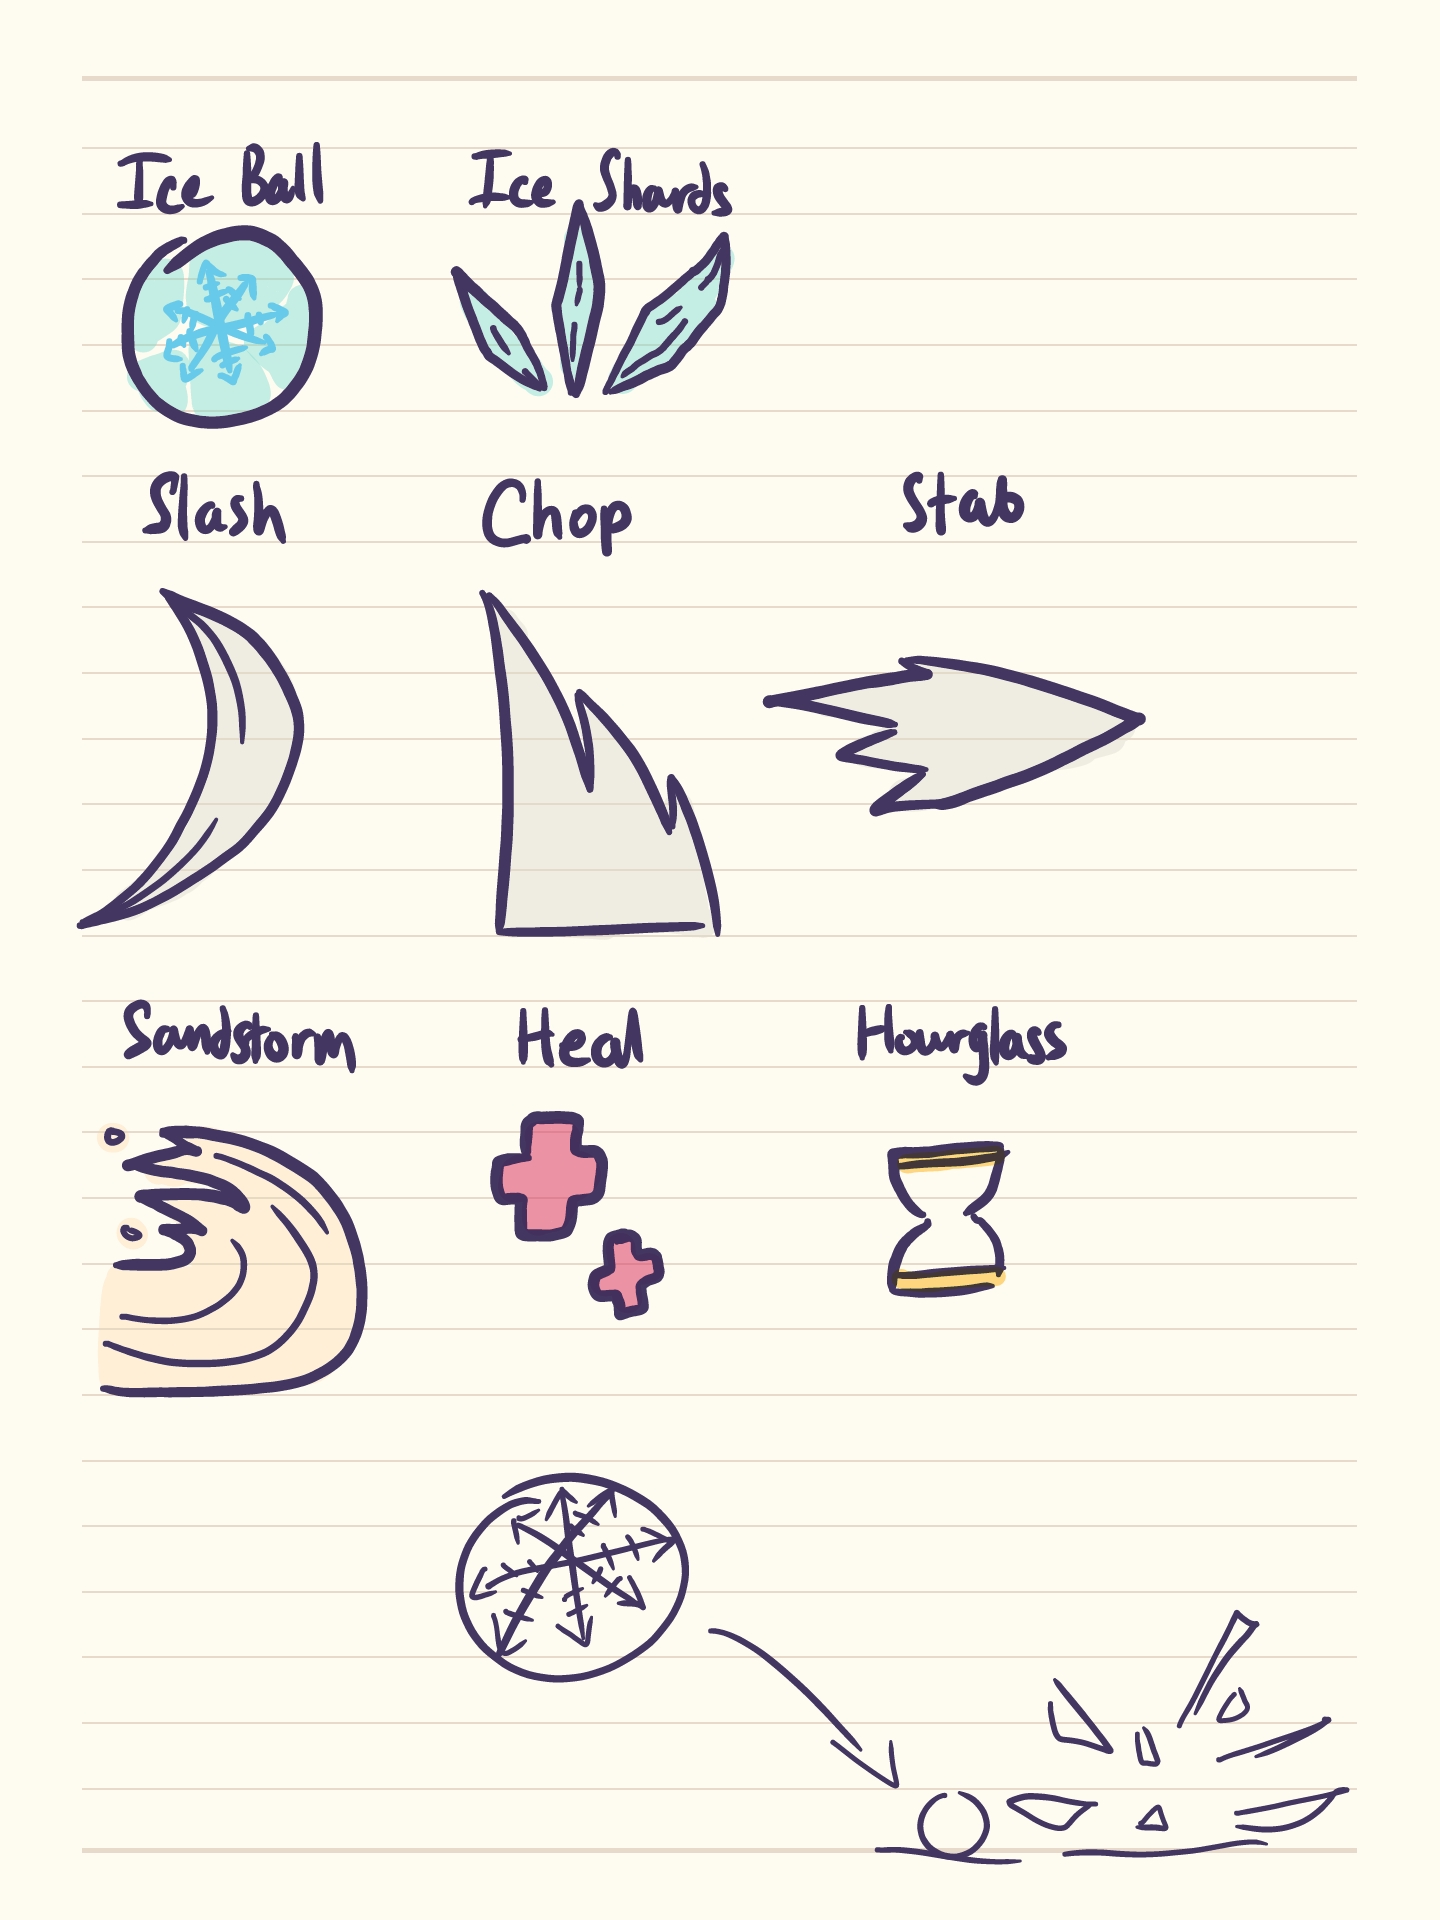 Ice Ball
Ice Shards
Slash
Chop
Stab
Sandstorm
Heal
Hourglass